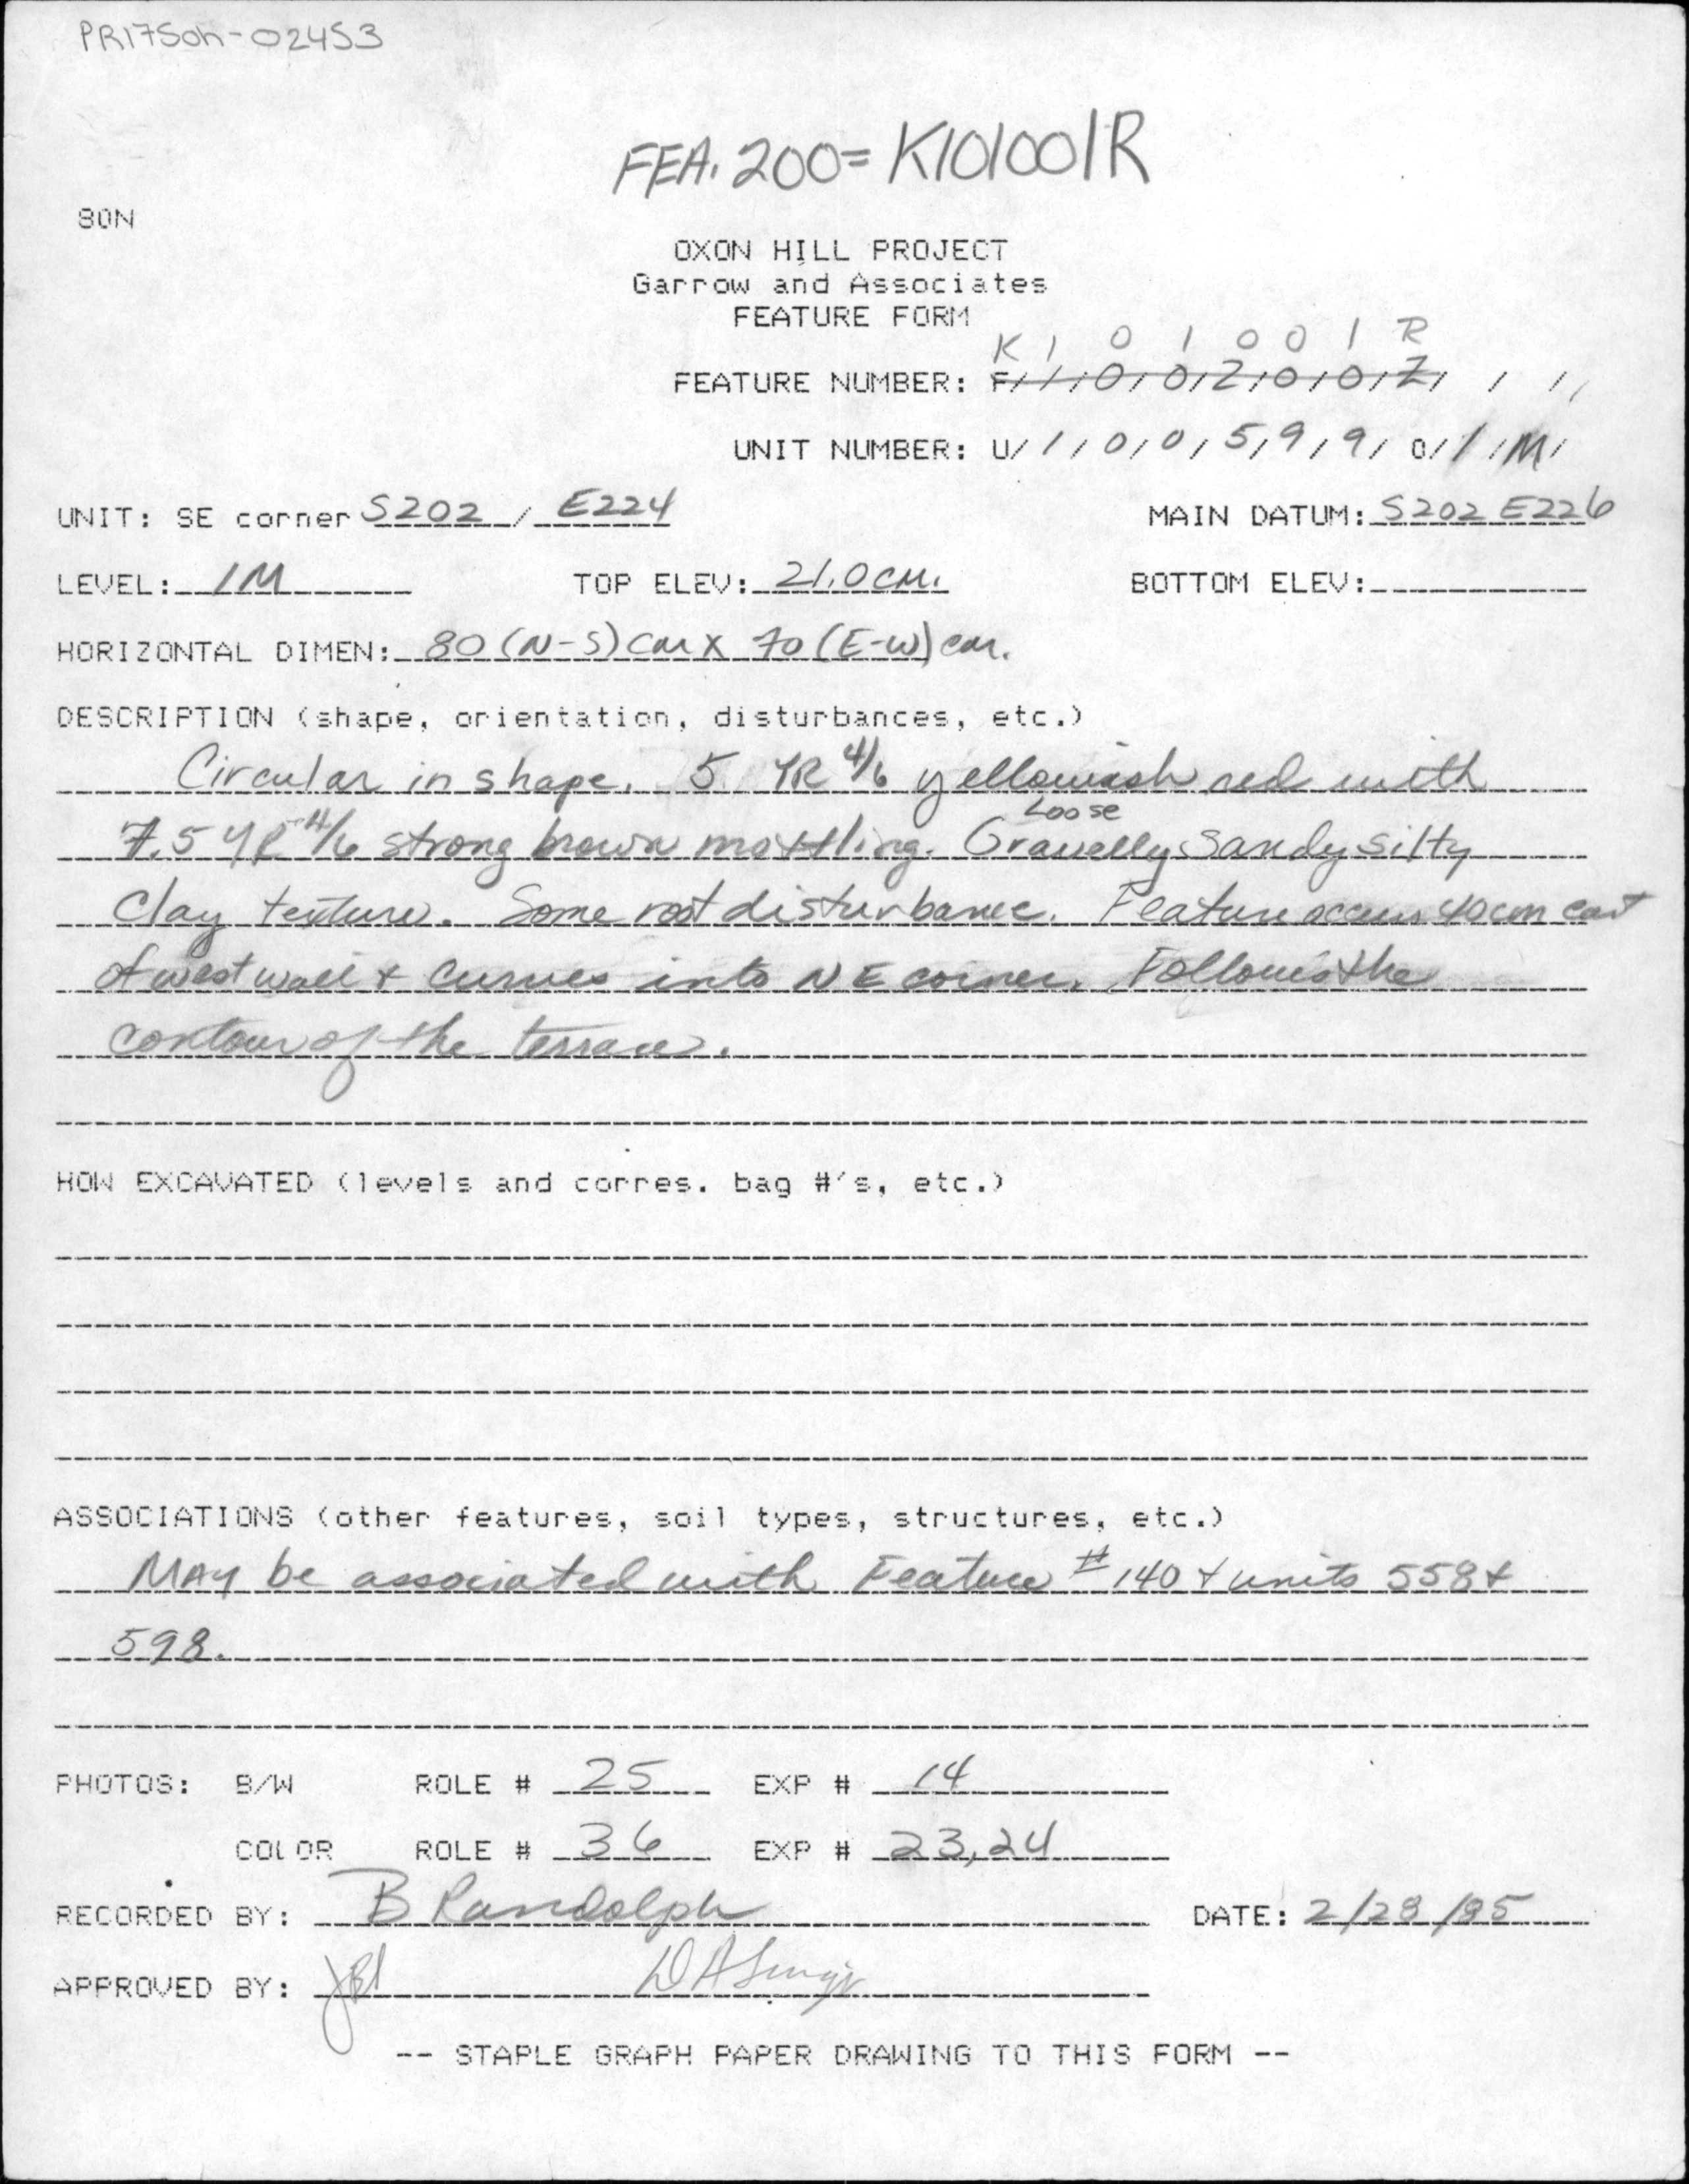 PR175oh-02453
FEA. 200= K101001R
80N
OXON HILL PROJECT
Garrow and Associates
FEATURE FORM
K 1 0 1 0 0 1 R
FEATURE NUMBER: F/1/0/0/2/0/0/Z/ / /
UNIT NUMBER: U/1/0/0/5/9/9/0/1/M/
UNIT: SE corner S202 / E224 MAIN DATUM: S202 E226
LEVEL: 1M TOP ELEV: 21.0 CM. BOTTOM ELEV:
HORIZONTAL DIMEN: 80 (N-S) cm X 70 (E-W) cm.
DESCRIPTION (shape, orientation, disturbances, etc.)
Circular in shape. 5 YR 4/6 yellowish red with
Loose
7.5 YR 4/6 strong brown mottling. Gravelly Sandy silty
Clay texture. Some root disturbance. Feature occurs 40cm east
of west wall & curves into NE corner. Follows the
contour of the terrace.
HOW EXCAVATED (levels and corres. bag #'s, etc.)
ASSOCIATIONS (other features, soil types, structures, etc.)
MAY be associated with Feature # 140 & units 558 &
598.
PHOTOS: B/W ROLE # 25 EXP # 14
COLOR ROLE # 36 EXP # 23,24
RECORDED BY: B Randolph DATE: 2/28/85
APPROVED BY:
-- STAPLE GRAPH PAPER DRAWING TO THIS FORM --